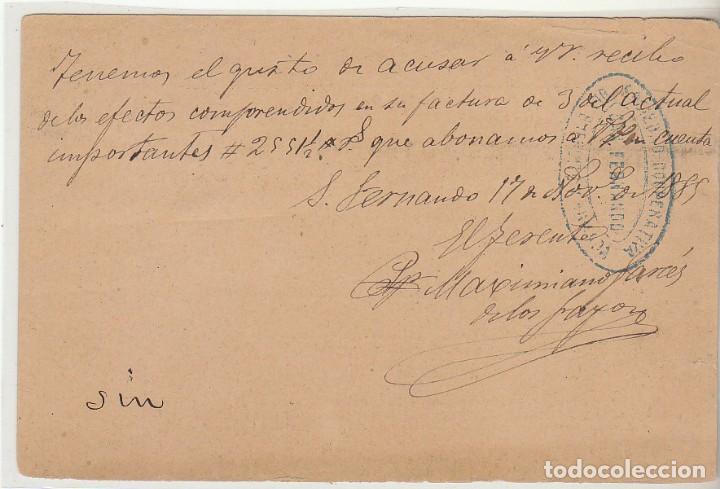 Tenemos el gusto de acusar á V. recibo
de los efectos comprendidos en su factura de 3 del actual
importantes # 2551½ # que abonamos á en cuenta
S. Fernando 17 de Nov. de 1885
El Gerente
PP Maximiano Garcés
de los Fayos
COOPERATIVA
S. FERNANDO
sin
todocoleccion.net